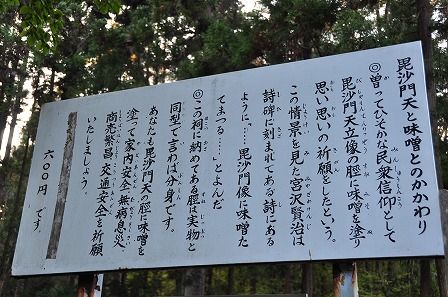 毘沙門天と味噌とのかかわり
◎曽ってひそかな民衆信仰として
毘沙門天立像の脛に味噌を塗り
思い思いの祈願をしたという。
この情景を見た宮沢賢治は
詩碑に刻まれてある詩にある
ように、……毘沙門像に味噌た
てまつる……」とよんだ
◎この祠に納めてある脛は実物と
同型で言わば分身です。
あなたも毘沙門天の脛に味噌を
塗って家内安全、無病息災
商売繁昌、交通安全を祈願
いたしましょう。
六〇〇円です。